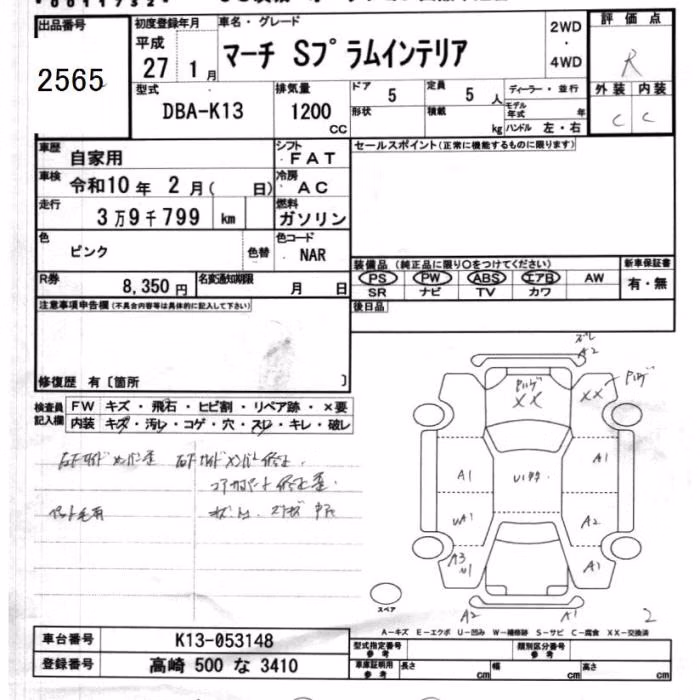 *0011732*
出品番号
2565
初度登録年月
平成
27 1月
車名・グレード
マーチ Sプラムインテリア
2WD
・
4WD
評価点
R
外装 内装
C C
型式
DBA-K13
排気量
1200
CC
ドア 5
形状
定員 5人
積載 kg
ディーラー・並行
モデル年式
ハンドル 左・右
車歴 自家用
シフト FAT
車検 令和10年 2月( 日)
冷房 AC
走行 3万9千799 km
燃料 ガソリン
色 ピンク
色替
色コード NAR
R券 8,350円
名変通知期限 月 日
セールスポイント(正常に機能するものに限ります)
装備品(純正品に限り○をつけてください)
PS PW ABS エアB AW
SR ナビ TV カワ
新車保証書
有・無
後日品
注意事項申告欄(不具合内容等は具体的に記入して下さい)
修復歴 有〔箇所 〕
検査員記入欄
FW キズ・飛石・ヒビ割・リペア跡・×要
内装 キズ・汚レ・コゲ・穴・スレ・キレ・破レ
ズレ
A2
XX
XX
A1
A1
UA1
A2
A1
A2
A1
2
スペア
A-キズ E-エクボ U-凹み W-補修跡 S-サビ C-腐食 XX-交換済
車台番号 K13-053148
登録番号 高崎 500 な 3410
型式指定番号 参考
類別区分番号 参考
車庫証明用 参考 長さ cm 幅 cm 高さ cm